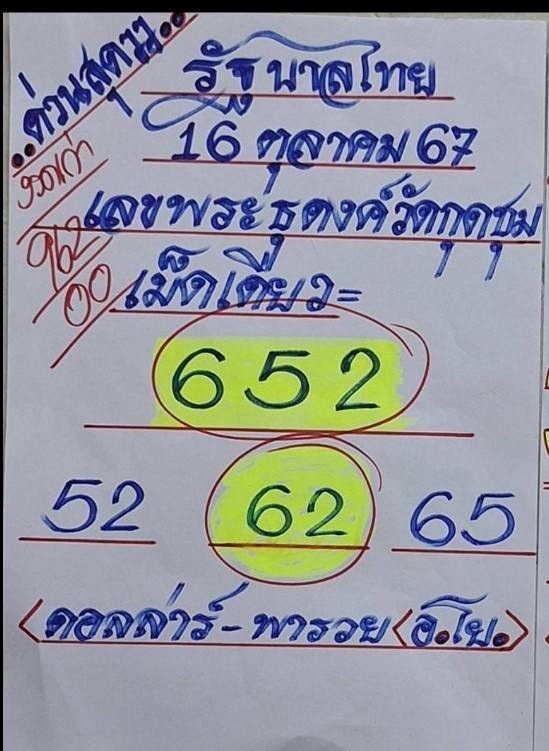 ..ด่วนสุดๆๆ..
รัฐบาลไทย
16 ตุลาคม 67
งวดเก่า
962
00
เลขพระธุดงค์วัดกุดชุม
เม็ดเดียว=
652
52 62 65
<ดอลล่าร์-พารวย<อ.โย.>